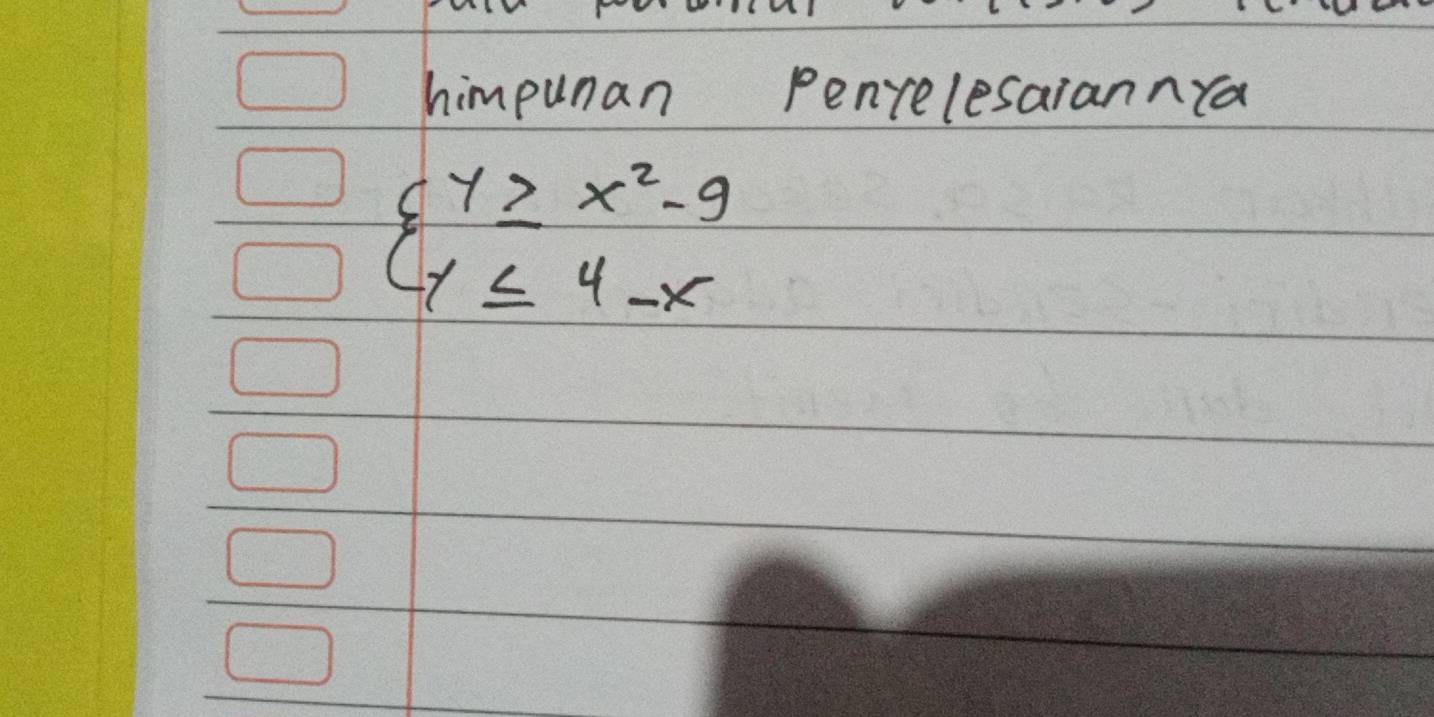 himpunan Penyelesaiannya
{ y ≥ x² - 9
y ≤ 4 - x